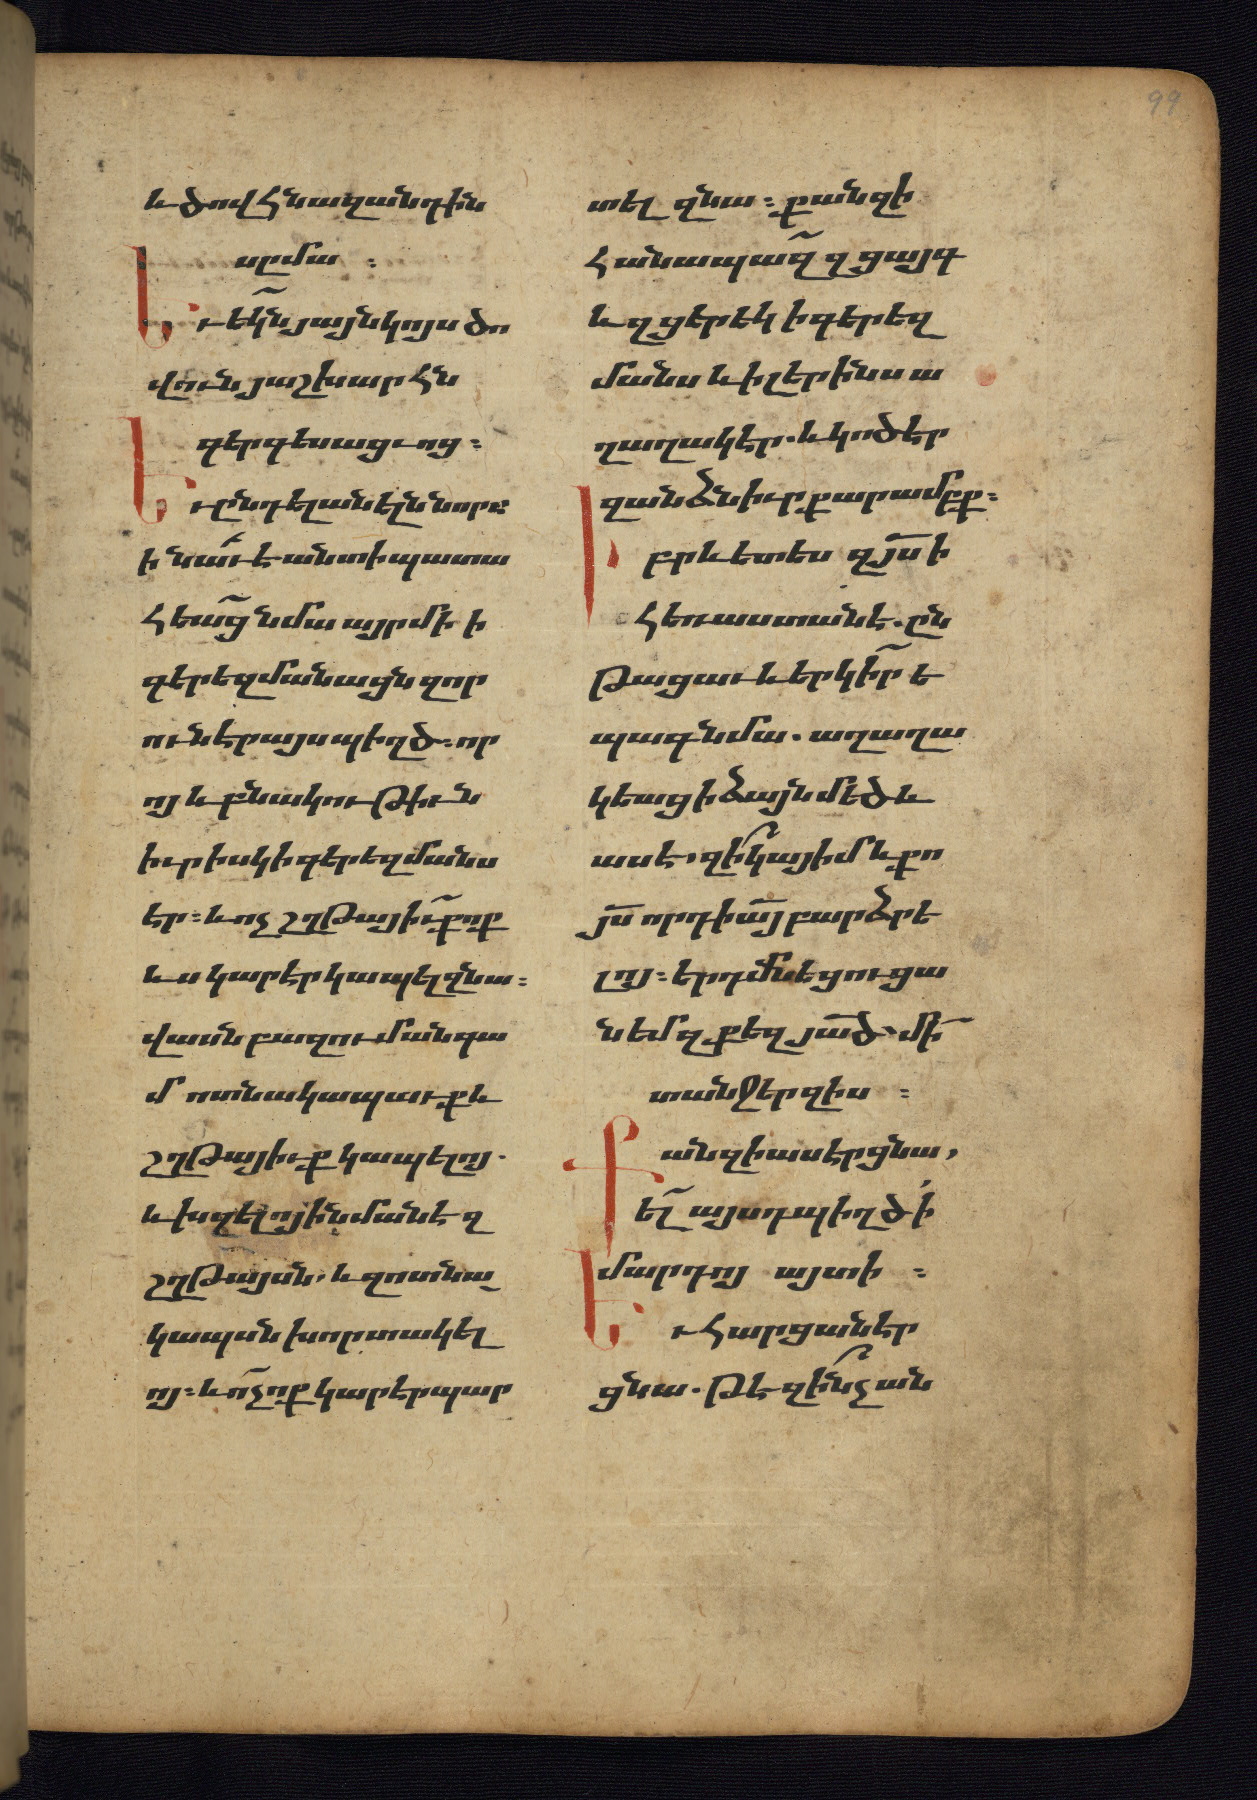 99
և ծով հնազանդին
սըմա ։
Եւ եկն յայնկոյս ծո
վուն յաշխարհն
գերգեսացւոց ։
Եւ ընդ ելանելն նորա
ի նաւէ անտի պատա
հեաց նմա այր մի ի
գերեզմանացն զոր
ունէր այս պիղծ ։ որ
ոյ և բնակութիւն
իւր իսկ ի գերեզմանս
էր ։ և ոչ շղթայիւք ոք
ևս կարէր կապել զնա ։
վասն բազում անգա
մ ոտնակապաւք և
շղթայիւք կապելոյ .
և խզելոյ ի նմանէ զ
շղթայսն , և զոտնա
կապսն խորտակել
ոյ ։ և ոչ ոք կարէր պար
տել զնա ։ քանզի
հանապազ զցայգ
և զցերեկ ի գերեզ
մանս և ի լերինս ա
ղաղակէր . և կոծէր
զանձն իւր քարամբք ։
Իբրև ետես զյս ի
հեռաստանէ . ըն
թացաւ և երկիր ե
պագ նմա . աղաղա
կեաց ի ձայն մեծ և
ասէ , զի կայ իմ և քո
յս որդի այ բարձրե
լոյ ։ երդմնեցուցա
նեմ զքեզ յած , մի
տանջեր զիս ։
Քանզի ասէր ցնա ,
ել այսդ պիղծ ի
մարդոյ այտի ։
Եւ հարցանէր
ցնա . թէ զինչ ան